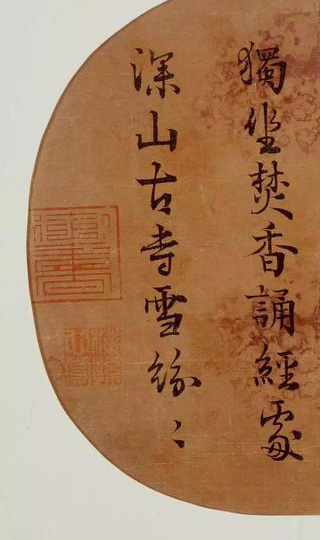 獨坐焚香誦經處
深山古寺雪紛〻
御書